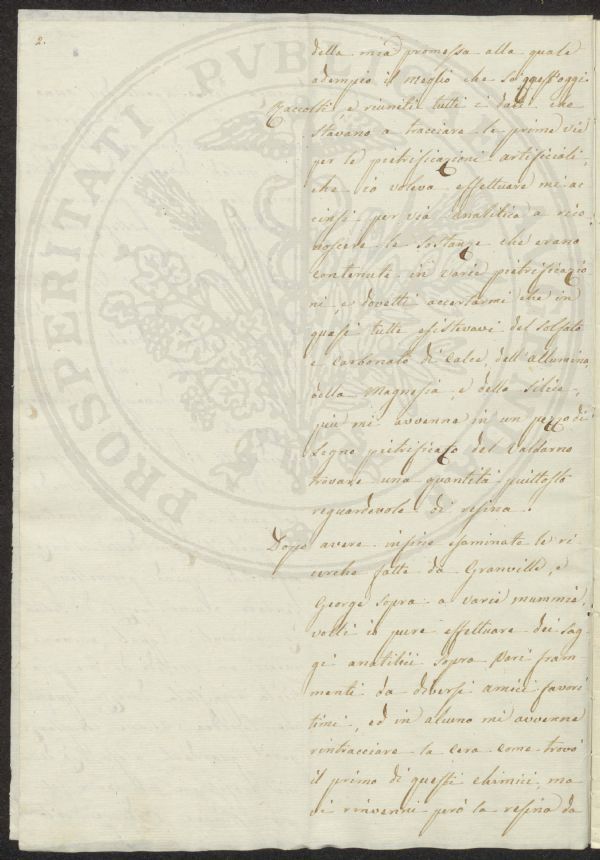 2.
della mia promessa alla quale
adempio il meglio che so quest'oggi.
Raccolti, e riuniti tutti i dati che
stavano a tracciare le prime vie
per le pietrificazioni artificiali,
che io voleva effettuare mi ac
cinsi per via analitica a rico
noscere le sostanze che erano
contenute in varie pietrificazio
ni, e dovetti accertarmi che in
quasi tutte esistevavi del solfato
e carbonato di calce, dell'allumina
della Magnesia, e della silice,
più mi avvenne in un pezzo di
Legno pietrificato del Valdarno
trovare una quantità piuttosto
reguardevole di resina.
Doppo avere infine esaminate le ri
cerche fatte da Granville, e
George sopra a varie mummie,
volli io pure effettuare dei sag
gi analitici sopra vari fram
menti da diversi amici favori
timi, ed in alcuno mi avvenne
rintracciare la cera come trovò
il primo di questi chimici, ma
vi rinvenni però la resina da
PROSPERITATI PUBLICAE